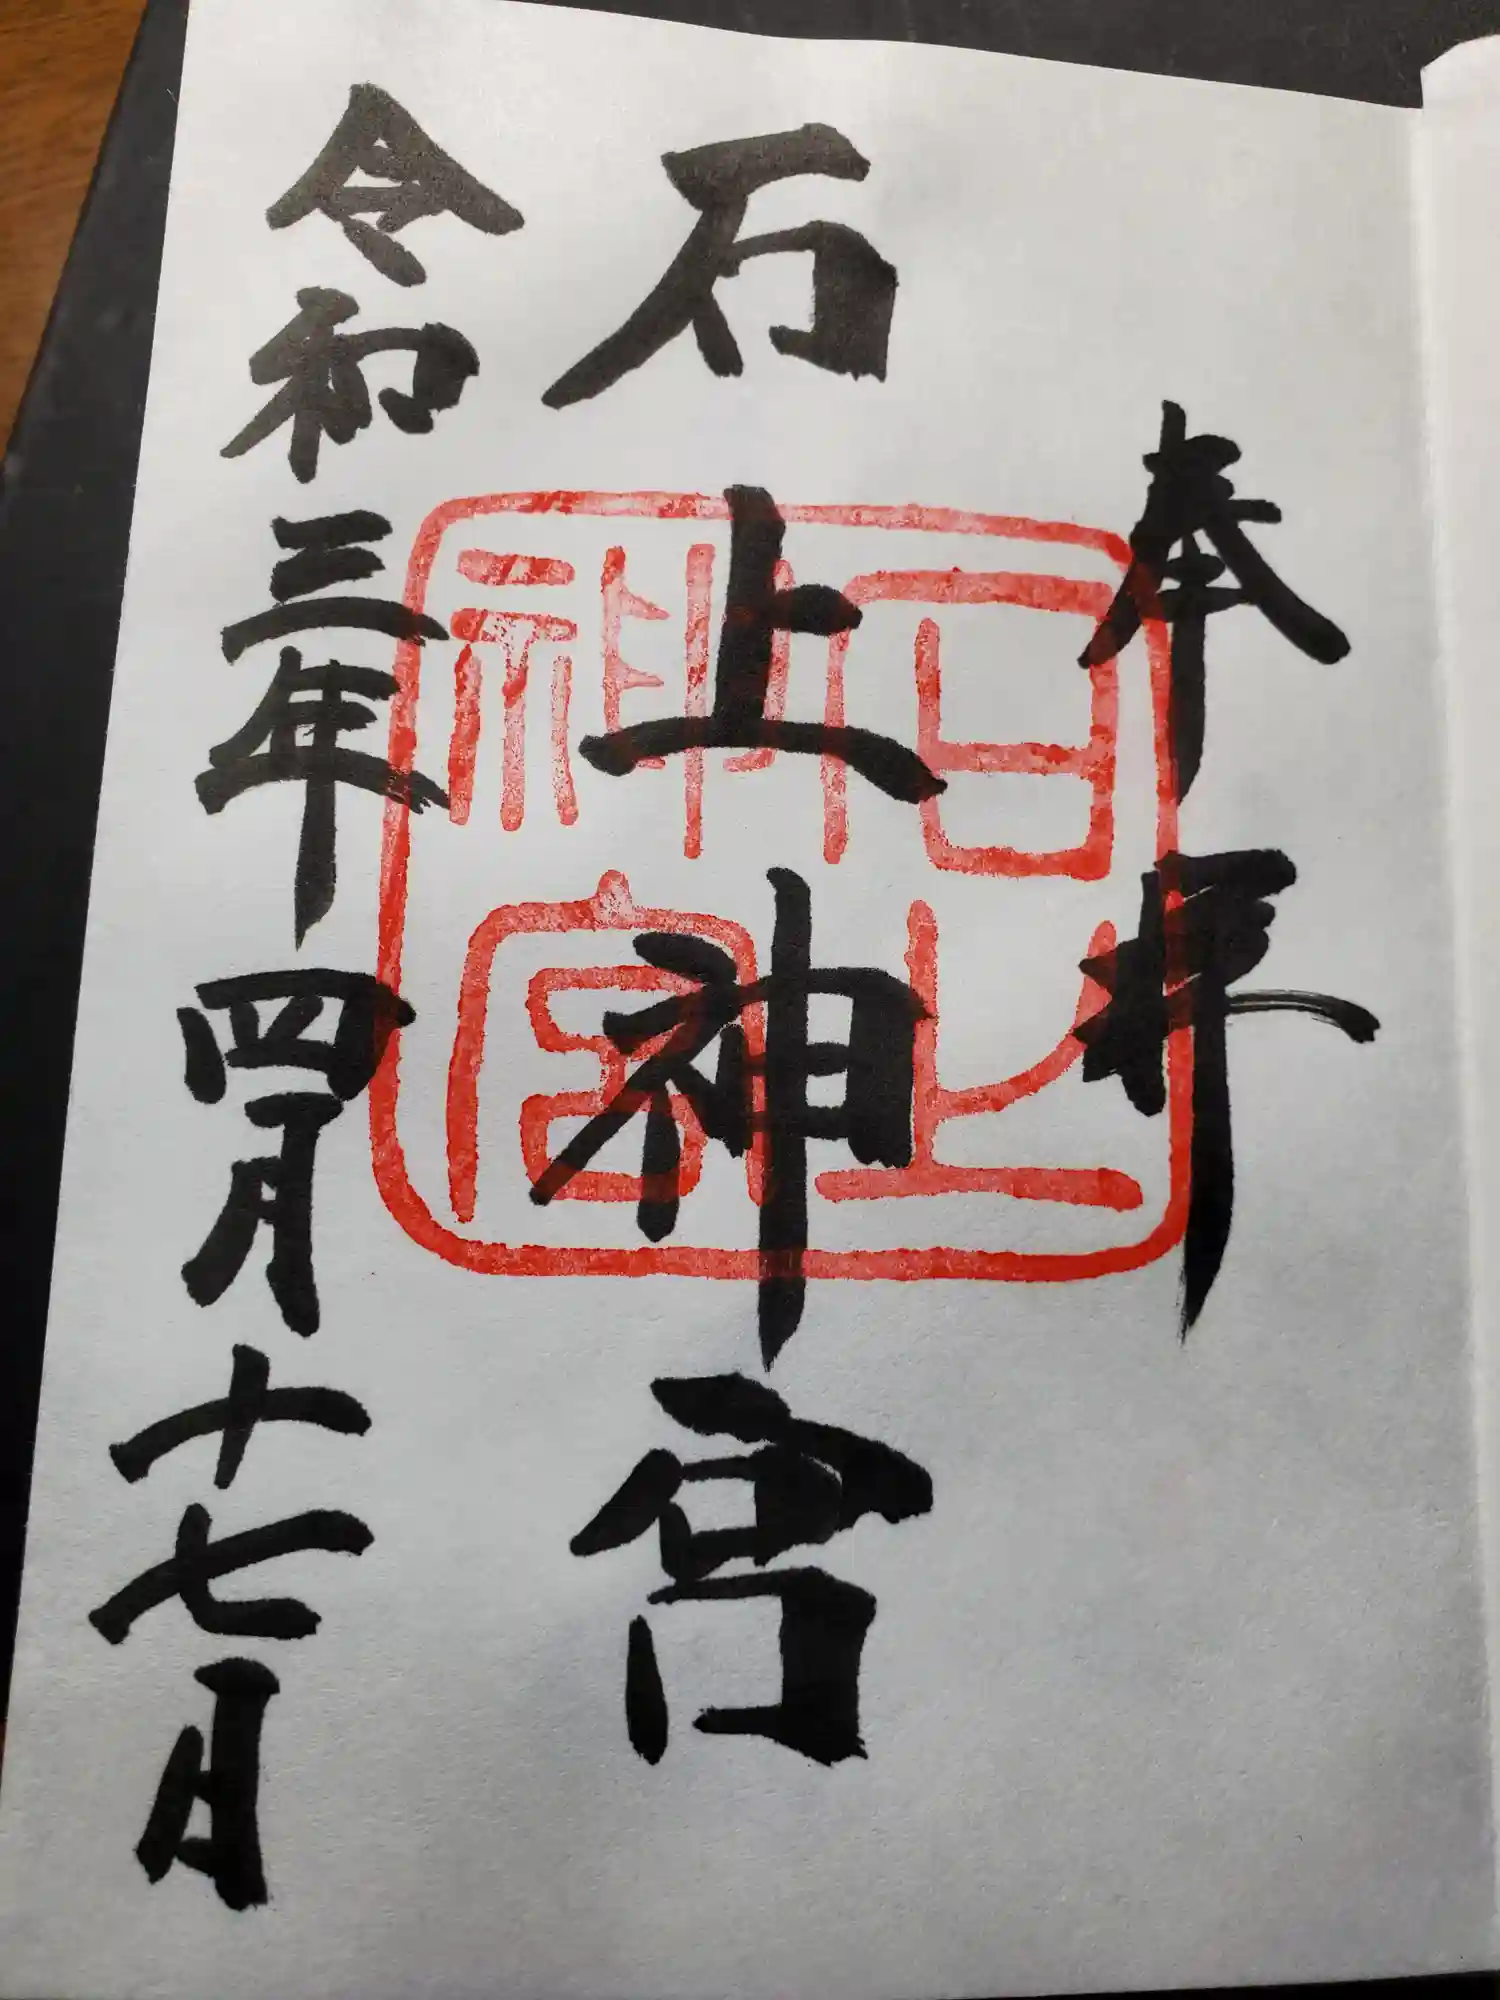 奉拝
石上神宮
石上神宮
令和三年四月十七日